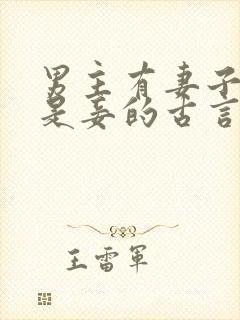 男主有妻子
是妾的古言
王雷军